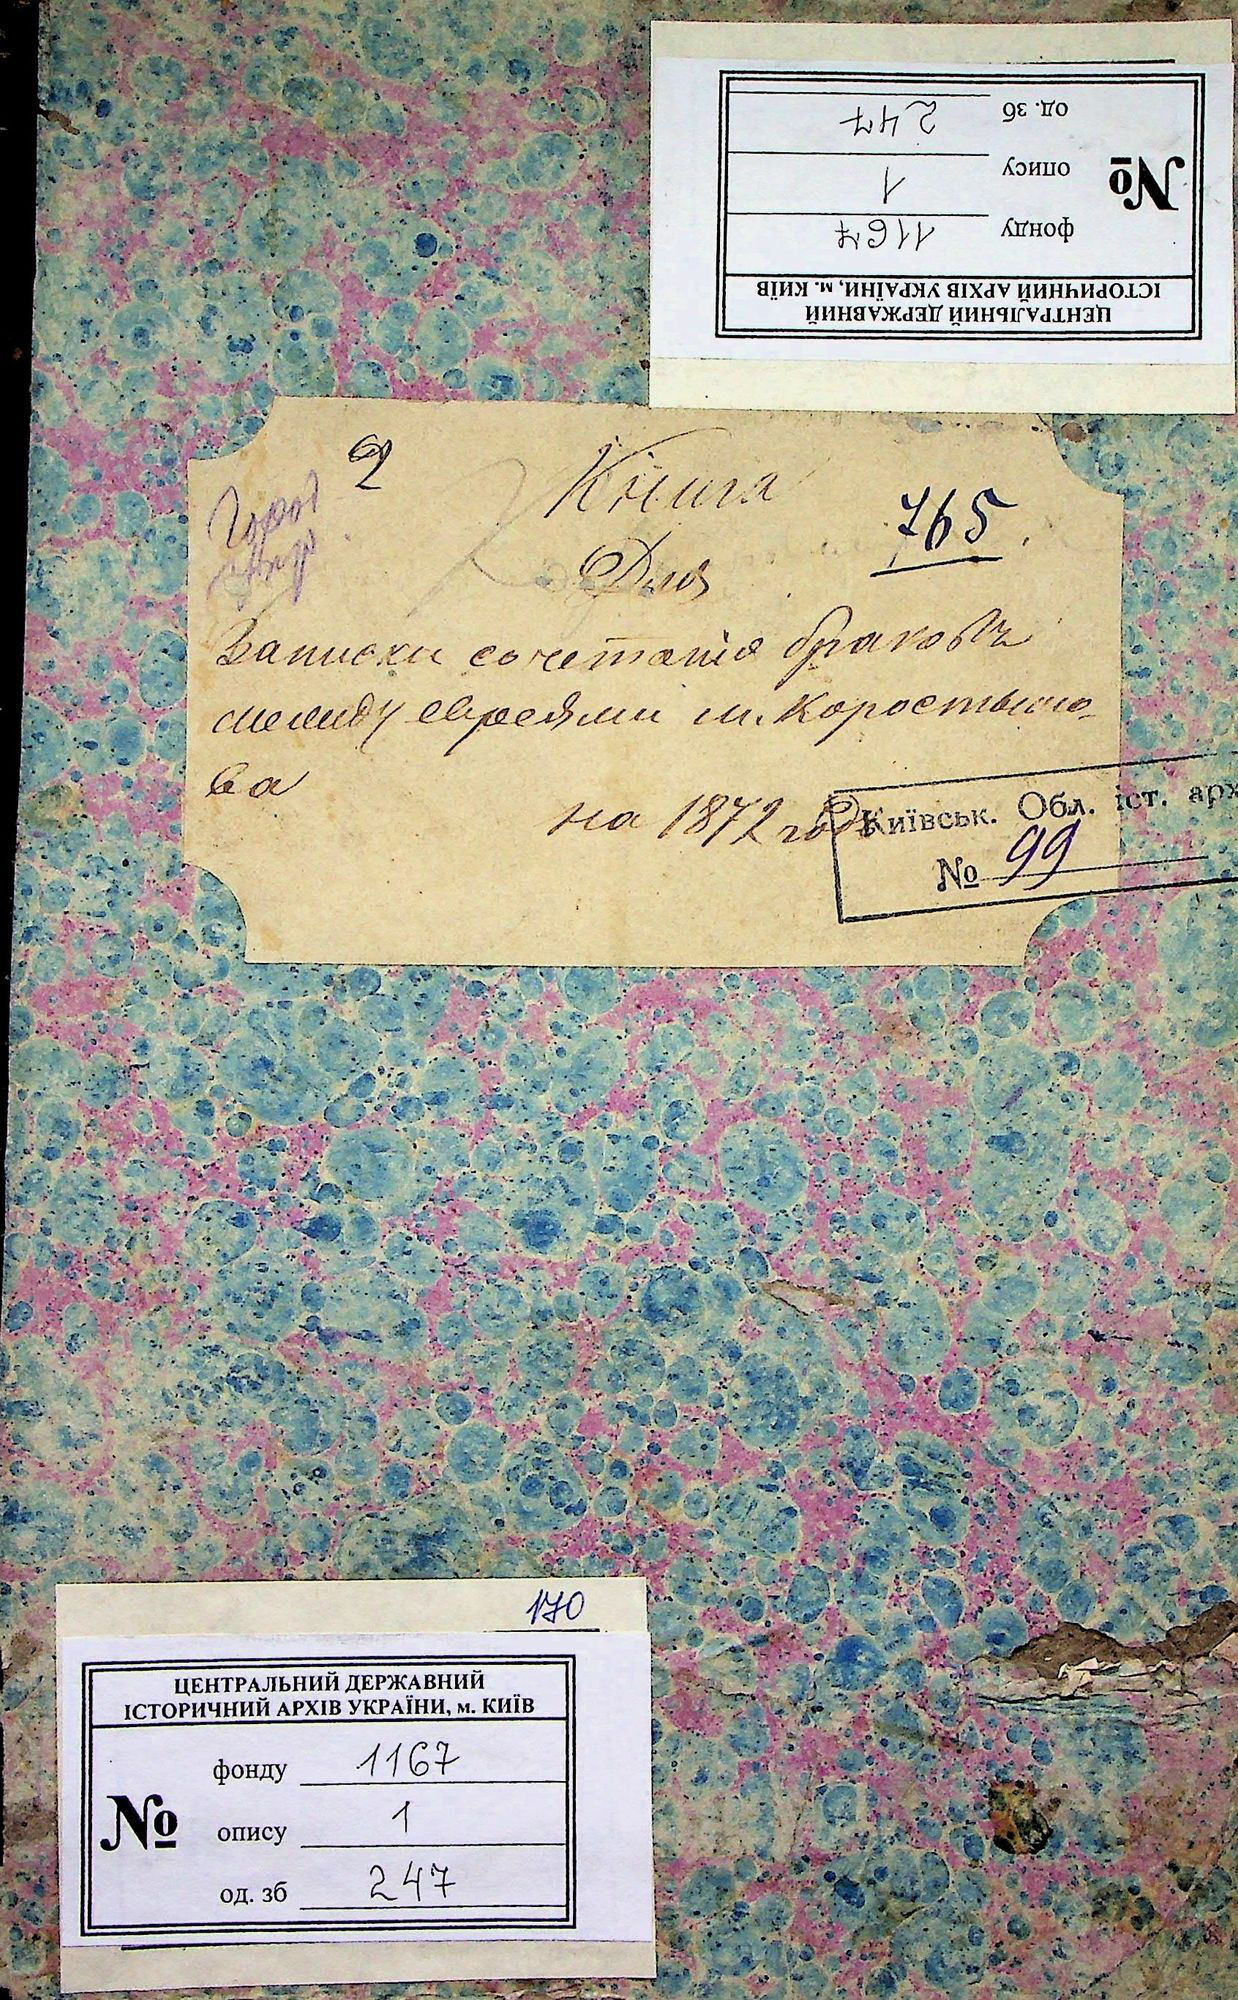 ЦЕНТРАЛЬНИЙ ДЕРЖАВНИЙ
ІСТОРИЧНИЙ АРХІВ УКРАЇНИ, м. КИЇВ
№
фонду 1167
опису 1
од. зб 247
2
Книга
765
Для
Записки сочетанія браковъ
между евреями м. Коростыше-
ва
на 1872 годъ
Київськ. Обл. іст. арх
№ 99
170
ЦЕНТРАЛЬНИЙ ДЕРЖАВНИЙ
ІСТОРИЧНИЙ АРХІВ УКРАЇНИ, м. КИЇВ
№
фонду 1167
опису 1
од. зб 247